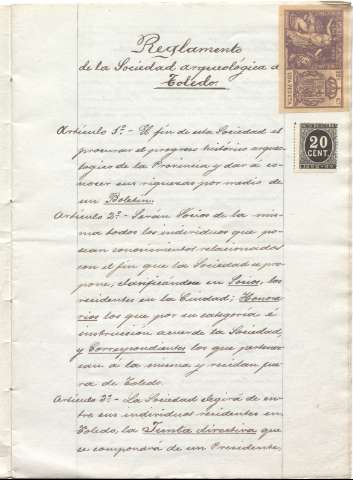 Reglamento
de la Sociedad arqueológica de
Toledo.
20
CENT.
Artículo 1º.- El fin de esta Sociedad es
procurar el progreso histórico arqueo-
lógico de la Provincia y dar a co-
nocer sus riquezas por medio de
un Boletín.
Artículo 2º.- Serán Socios de la mis-
ma todos los individuos que po-
sean conocimientos relacionados
con el fin que la Sociedad se pro-
pone, clasificándose en Socios, los
residentes en la Ciudad; Honora-
rios los que por su categoría é
instrucción acuerde la Sociedad
y Correspondientes los que pertenez-
can á la misma y residan fue-
ra de Toledo.
Artículo 3º.- La Sociedad elegirá de en-
tre sus individuos residentes en
Toledo, la Junta directiva que
se compondrá de un Presidente,